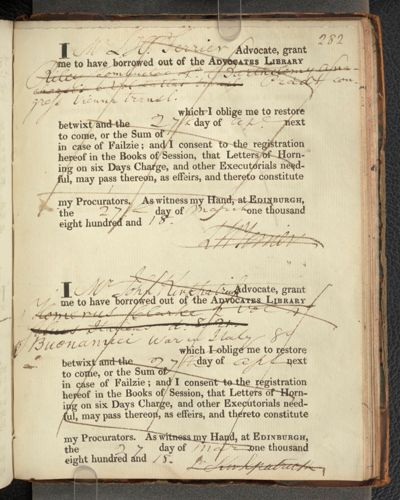 282
I Mr L H Ferrier Advocate, grant
me to have borrowed out of the ADVOCATES LIBRARY
which I oblige me to restore
betwixt and the 27th day of next
to come, or the Sum of
in case of Failzie; and I consent to the registration
hereof in the Books of Session, that Letters of Horn-
ing on six Days Charge, and other Executorials need-
ful, may pass thereon, as effeirs, and thereto constitute
my Procurators. As witness my Hand, at EDINBURGH,
the 27th day of March one thousand
eight hundred and 18.
L H Ferrier
I Mr John Kirkpatrick Advocate, grant
me to have borrowed out of the ADVOCATES LIBRARY
Buonamici War in Italy 8o
which I oblige me to restore
betwixt and the 27th day of next
to come, or the Sum of
in case of Failzie; and I consent to the registration
hereof in the Books of Session, that Letters of Horn-
ing on six Days Charge, and other Executorials need-
ful, may pass thereon, as effeirs, and thereto constitute
my Procurators. As witness my Hand, at EDINBURGH,
the 27 day of March one thousand
eight hundred and 18.
Kirkpatrick